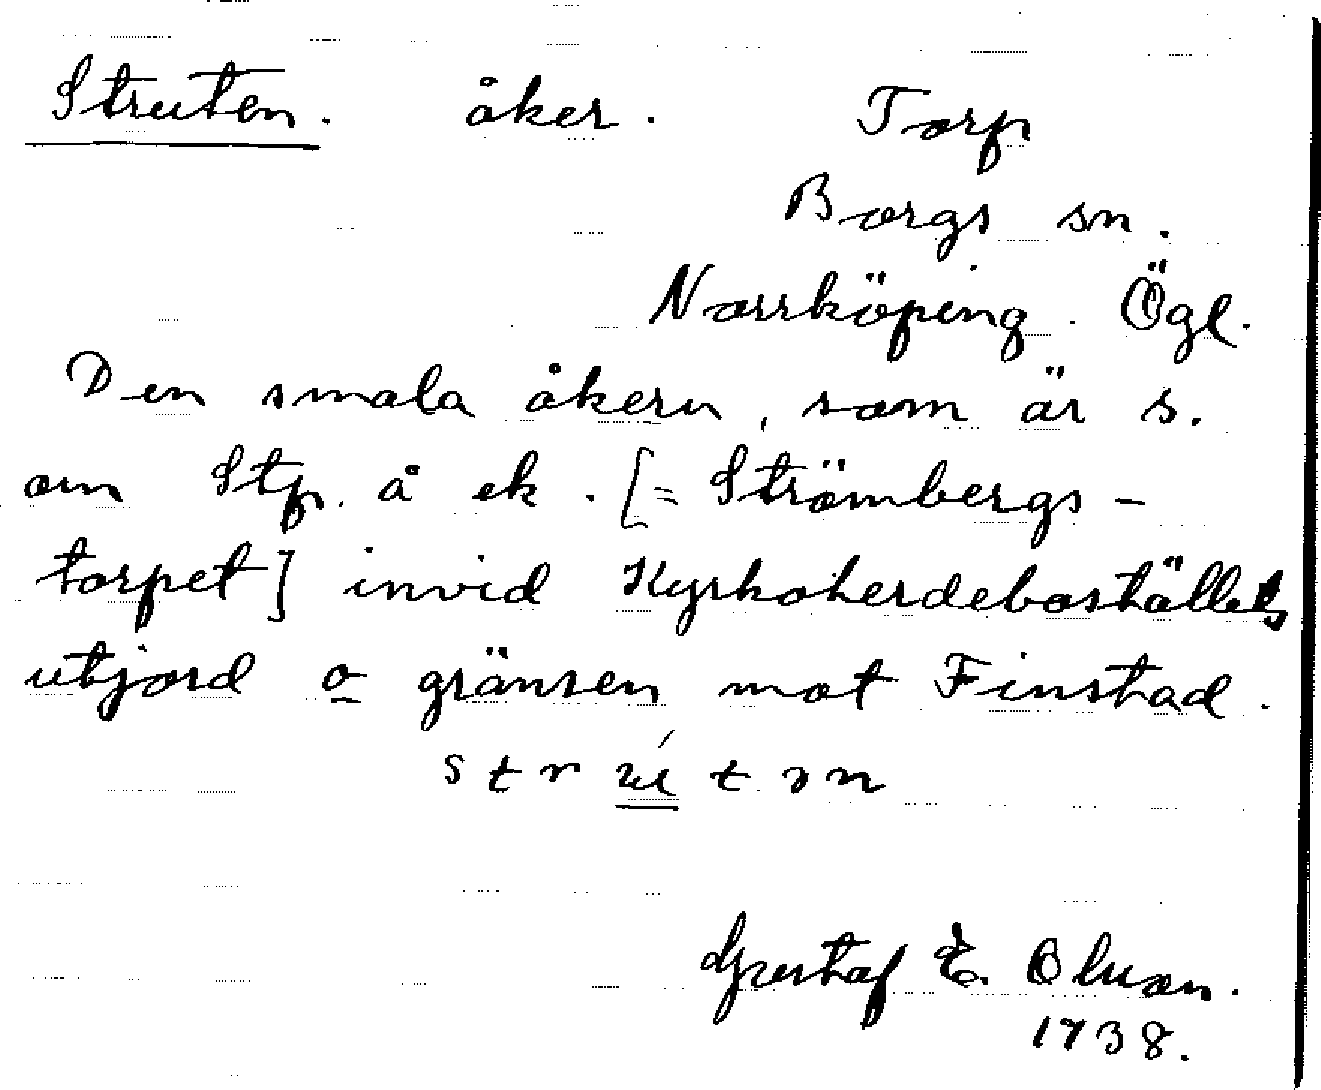 Struten. åker. Torp
Borgs sn.
Norrköping. Ögl.
Den smala åkern, som är s.
om Stp. å ek. [= Strömbergs-
torpet] invid Kyrkoherdeboställets
utjord o gränsen mot Finstad.
strútən
Gustaf E. Olson.
1938.